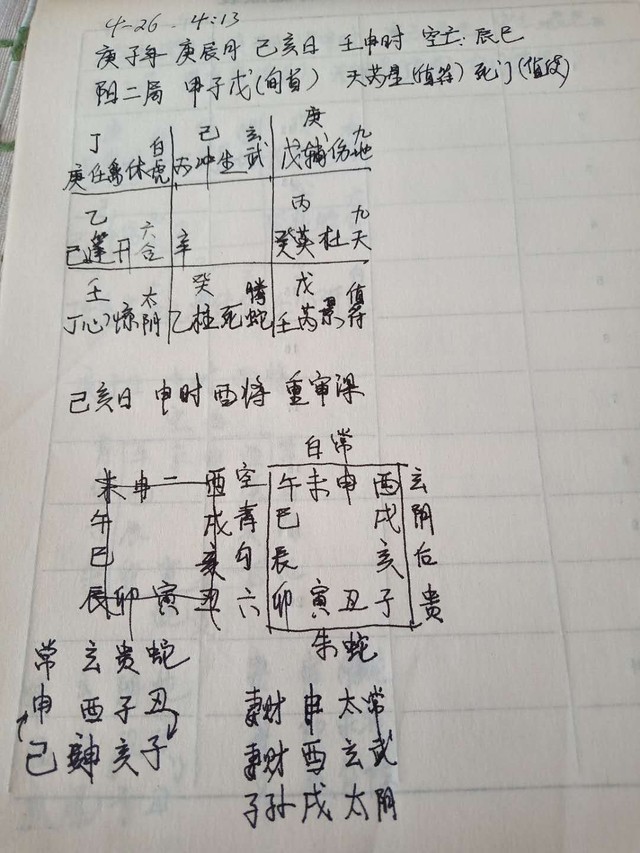 4-26. 4:13
庚子年 庚辰月 己亥日 壬申时 空亡: 辰巳
阳二局 甲子戊(旬首) 天芮星(值符) 死门(值使)
丁 白 己 玄 庚 九
庚任禽休虎 丙冲生武 戊辅伤地
乙 六 丙 九
己蓬开合 辛 癸英杜天
壬 太 癸 腾 戊 值
丁心惊阴 乙柱死蛇 壬芮景符
己亥日 申时 酉将 重审课
白常
未申 酉 空 午未申酉 玄
午 戌 青 巳 戌 阴
巳 亥 勾 辰 亥 后
辰卯寅丑 六 卯寅丑子 贵
朱蛇
常 玄 贵 蛇
申 酉 子 丑
己 申 亥 子
妻财 申 太常
妻财 酉 玄武
子孙 戌 太阴